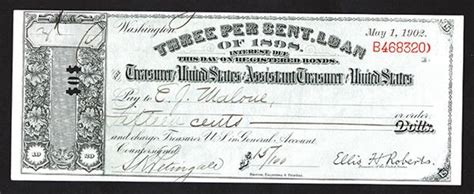 Washington
THREE PER CENT. LOAN
May 1, 1902.
OF 1898.
B468320
INTEREST DUE
THIS DAY ON REGISTERED BONDS.
Treasurer United States or Assistant Treasurer United States
Pay to E. J. Malone, or order,
fifteen cents Dolls.
and charge Treasurer U.S. in General Account
Countersigned
$ 15/100
Ellis H. Roberts.